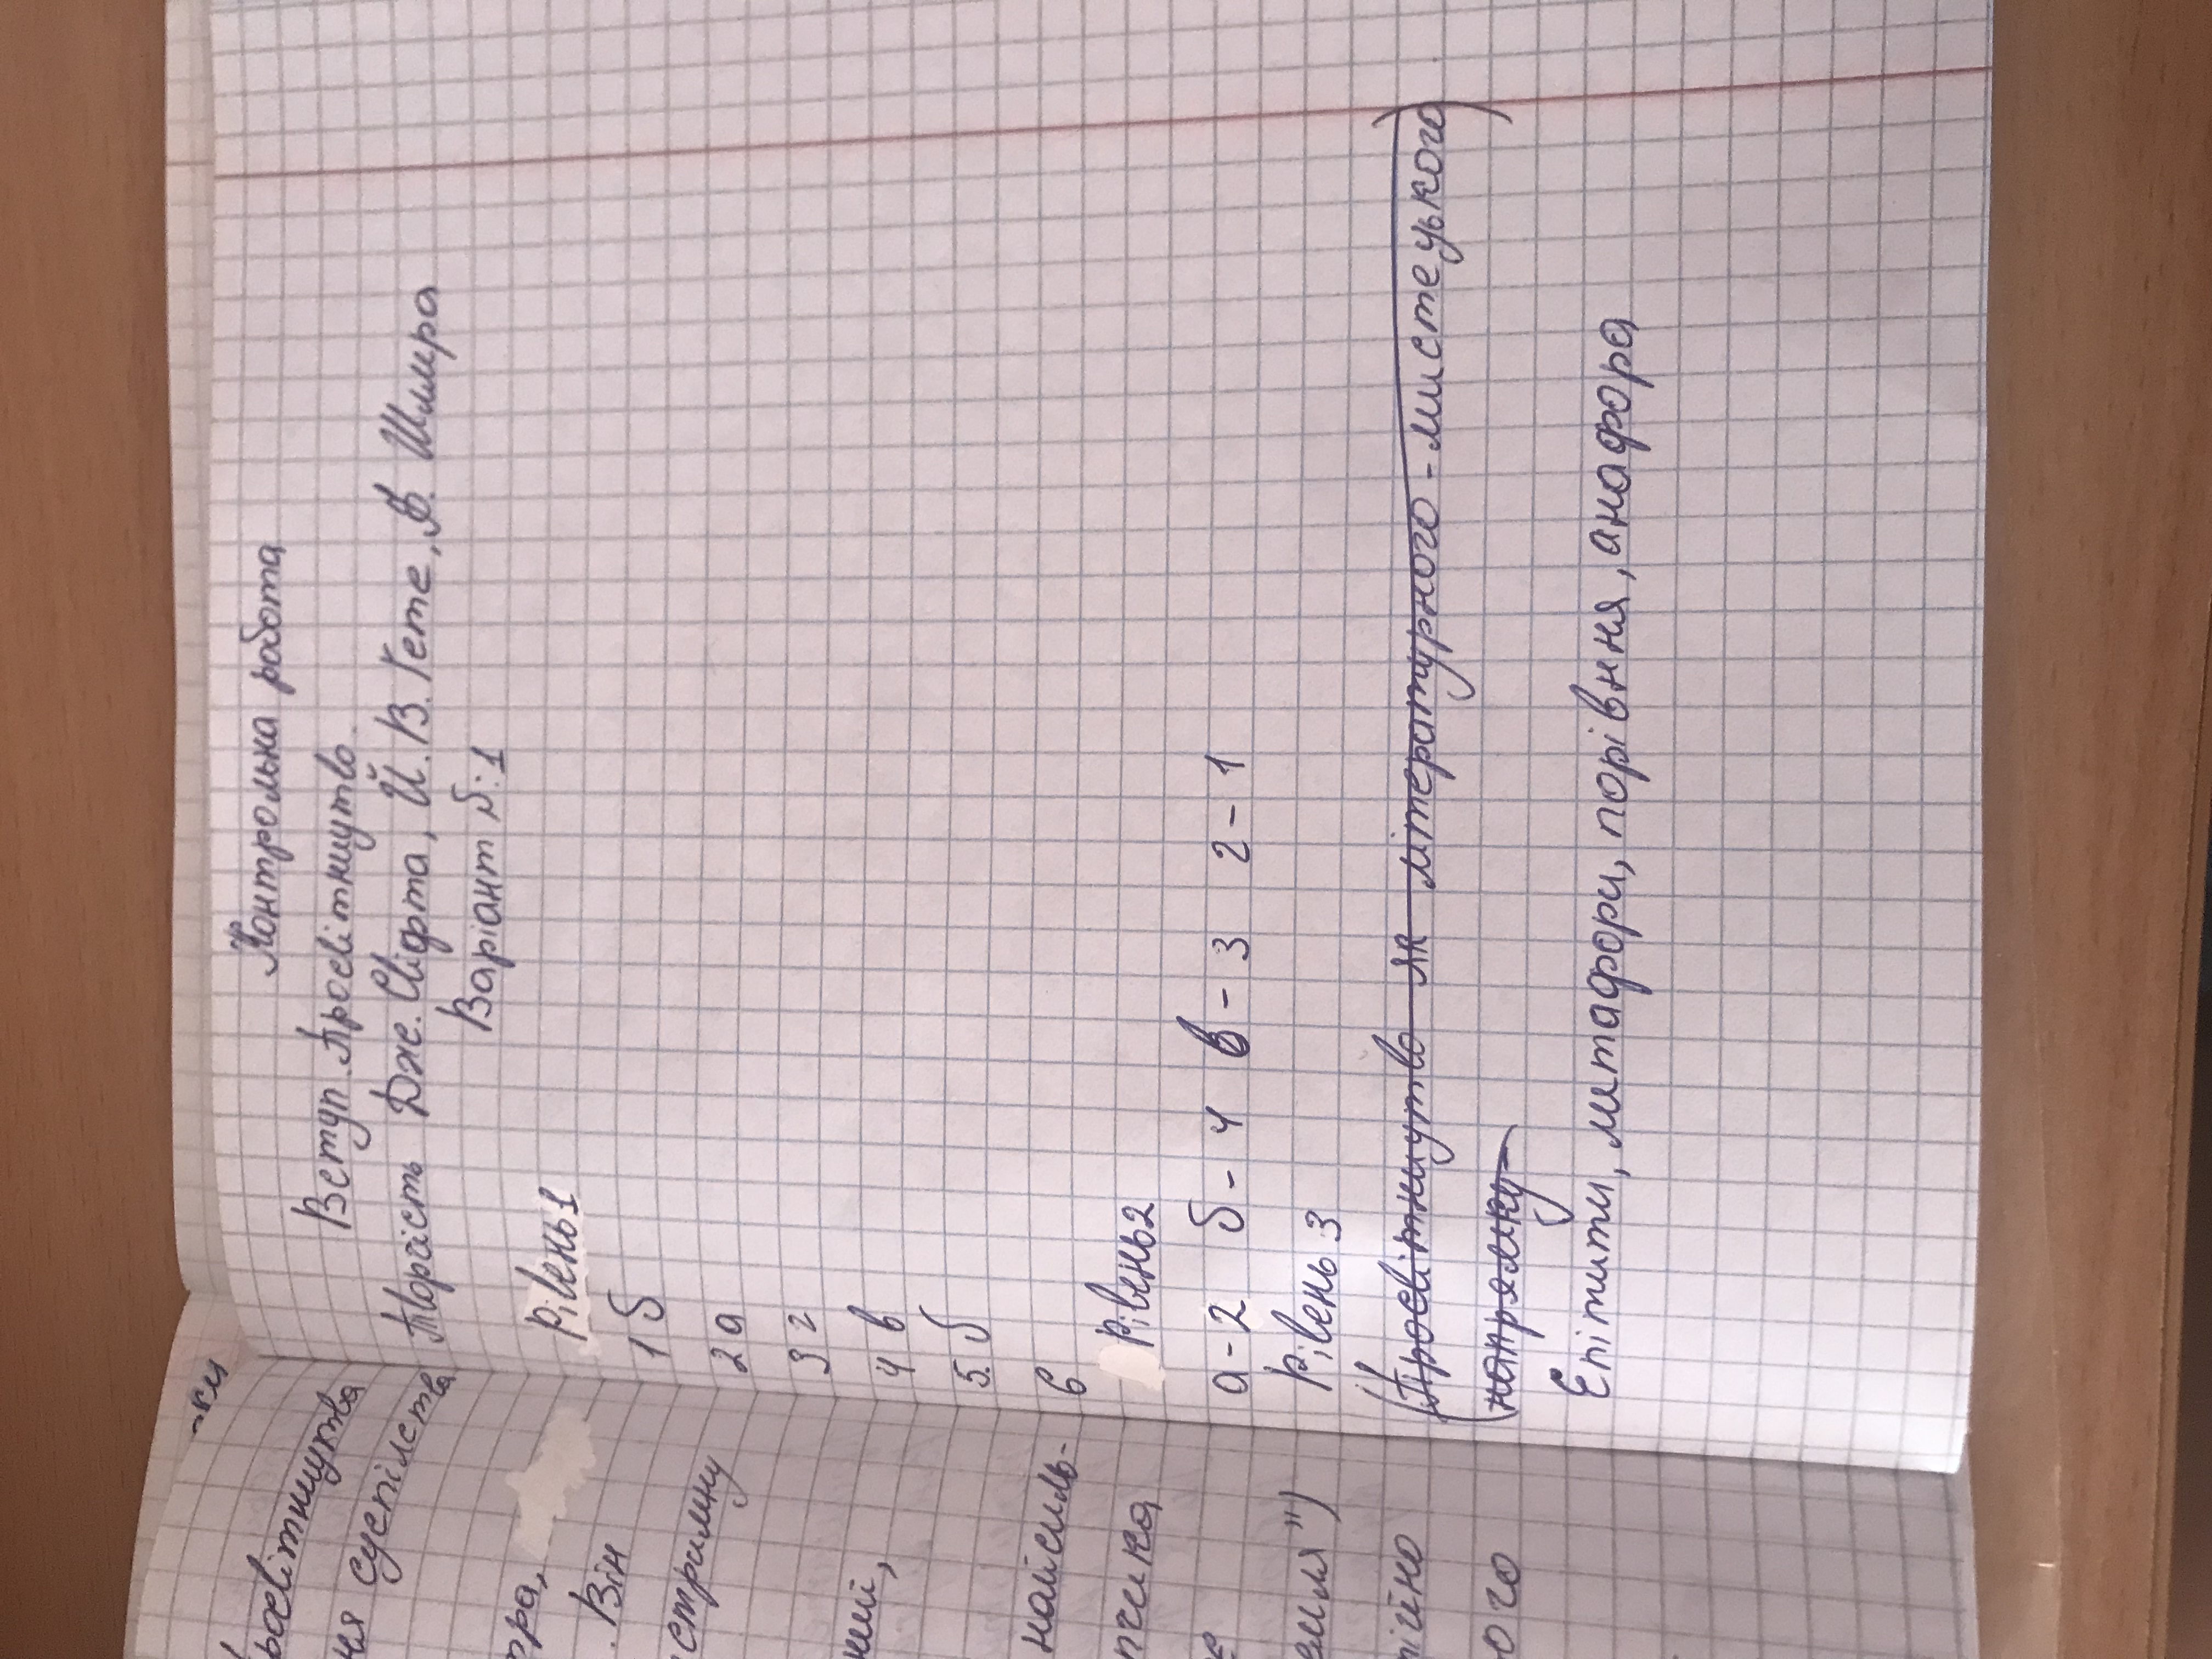 Контрольна робота
Вступ. Просвітництво.
Творчість Дж. Свіфта, Й. В. Гете, Ф. Шиллра
Варіант №1
Рівень 1
1 б
2 а
3 г
4 в
5. б
6
Рівень 2
а - 2 б - 4 в - 3 2 - 1
Рівень 3
(Просвітництво як літературного - мистецького)
(напрямку)
Епітити, митафори, порівння, анафора
-ки
росвітництва
ня суспільства
тра,
. Він
стриму
ний,
найсиль-
пчика
е
емля")
тійно
ого